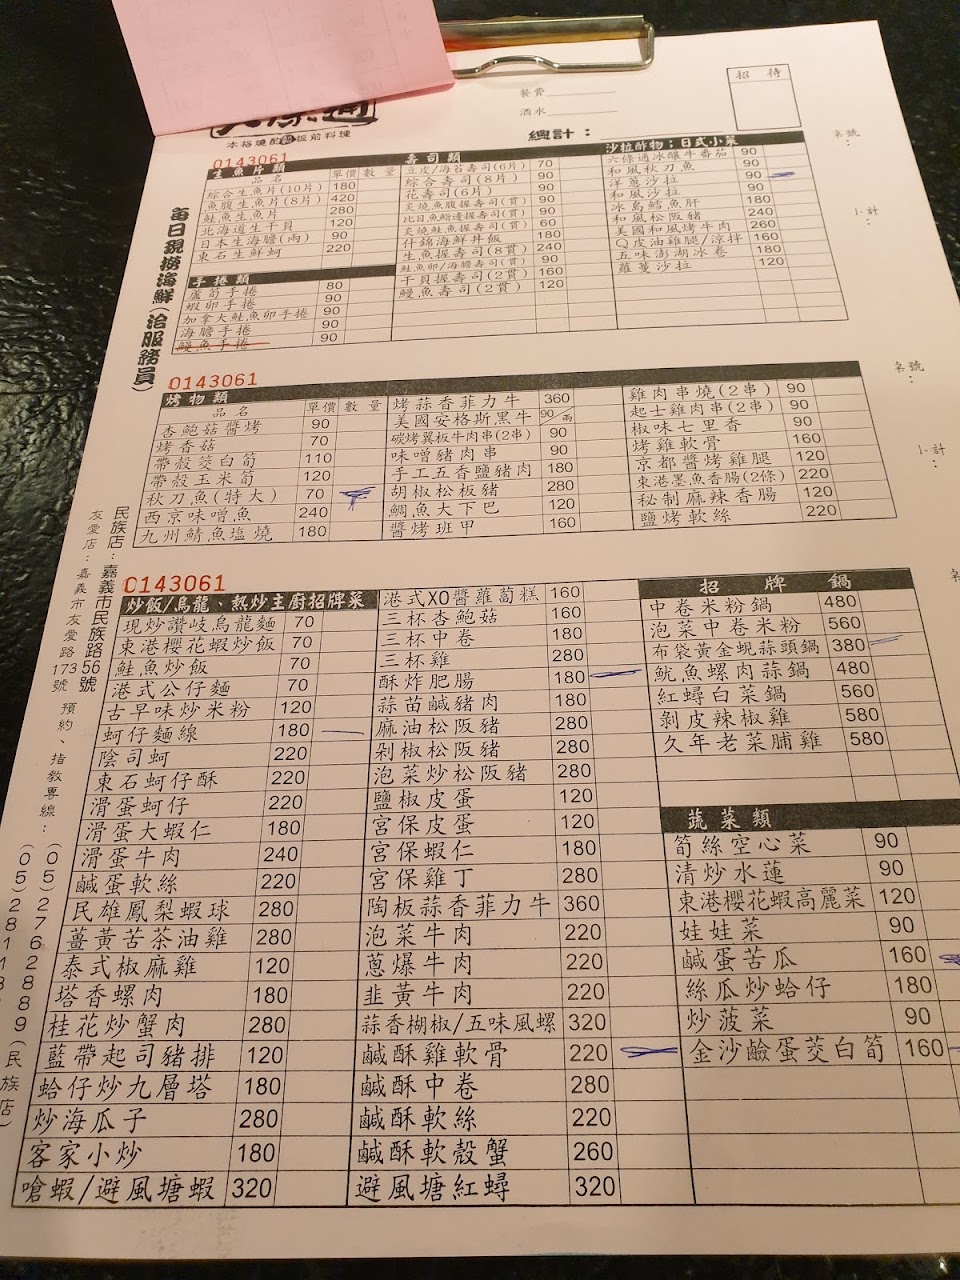 招待
餐費
酒水
本格燒酌 板前料理
總計：
0143061
每日現撈海鮮(洽服務員)
生魚片類
品名 單價 數量
綜合生魚片(10片) 180
魚腹生魚片(8片) 420
鮭魚生魚片 280
北海道生干貝 120
日本生海膽(兩) 90
東石生鮮蚵 220
手捲類
蘆筍手捲 80
蝦卵手捲 90
加拿大鮭魚卵手捲 90
海膽手捲 90
鰻魚手捲 90
壽司類
豆皮/海苔壽司(6片) 70
綜合壽司(8片) 90
花壽司(6片) 90
炙燒魚腹握壽司(貫) 90
比目魚鰭邊握壽司(貫) 90
炙燒魚握壽司(貫) 60
什錦海鮮丼飯 180
生魚握壽司(8貫) 240
鮭魚卵/海膽壽司(貫) 90
干貝握壽司(2貫) 160
鰻魚壽司(2貫) 120
沙拉酢物；日式小菜
六條通冰釀牛番茄 90
和風秋刀魚 90
洋蔥沙拉 90
和風沙拉 90
冰島鱈魚肝 180
和風松阪豬 240
美國和風烤牛肉 260
Q皮油雞腿/涼拌 160
五味澎湖冰卷 180
蘿蔓沙拉 120
桌號：
小計：
0143061
烤物類
品名 單價 數量
杏鮑菇醬烤 90
烤香菇 70
帶殼茭白筍 110
帶殼玉米筍 120
秋刀魚(特大) 70
西京味噌魚 240
九州鯖魚塩燒 180
烤蒜香菲力牛 360
美國安格斯黑牛 90/兩
碳烤翼板牛肉串(2串) 90
味噌豬肉串 90
手工五香鹽豬肉 180
胡椒松板豬 280
鯛魚大下巴 120
醬烤班甲 160
雞肉串燒(2串) 90
起士雞肉串(2串) 90
椒味七里香 90
烤雞軟骨 160
京都醬烤雞腿 120
東港墨魚香腸(2條) 220
秘制麻辣香腸 120
鹽烤軟絲 220
桌號：
小計：
民族店：嘉義市民族路56號 預約、指教專線：(05)2762889(民族店)
友愛店：嘉義市友愛路173號
0143061
炒飯/烏龍、熱炒主廚招牌菜
現炒讚岐烏龍麵 70
東港櫻花蝦炒飯 70
鮭魚炒飯 70
港式公仔麵 70
古早味炒米粉 120
蚵仔麵線 180
陰司蚵 220
東石蚵仔酥 220
滑蛋蚵仔 220
滑蛋大蝦仁 180
滑蛋牛肉 240
鹹蛋軟絲 220
民雄鳳梨蝦球 280
薑黃苦茶油雞 280
泰式椒麻雞 120
塔香螺肉 180
桂花炒蟹肉 280
藍帶起司豬排 120
蛤仔炒九層塔 180
炒海瓜子 280
客家小炒 180
嗆蝦/避風塘蝦 320
港式XO醬蘿蔔糕 160
三杯杏鮑菇 160
三杯中卷 180
三杯雞 280
酥炸肥腸 180
蒜苗鹹豬肉 180
麻油松阪豬 280
剁椒松阪豬 280
泡菜炒松阪豬 280
鹽椒皮蛋 120
宮保皮蛋 120
宮保蝦仁 180
宮保雞丁 280
陶板蒜香菲力牛 360
泡菜牛肉 220
蔥爆牛肉 220
韭黃牛肉 220
蒜香椒椒/五味風螺 320
鹹酥雞軟骨 220
鹹酥中卷 280
鹹酥軟絲 220
鹹酥軟殼蟹 260
避風塘紅蟳 320
招牌鍋
中卷米粉鍋 480
泡菜中卷米粉 560
布袋黃金蜆蒜頭鍋 380
魷魚螺肉蒜鍋 480
紅蟳白菜鍋 560
剝皮辣椒雞 580
久年老菜脯雞 580
蔬菜類
筍絲空心菜 90
清炒水蓮 90
東港櫻花蝦高麗菜 120
娃娃菜 90
鹹蛋苦瓜 160
絲瓜炒蛤仔 180
炒菠菜 90
金沙鹼蛋茭白筍 160